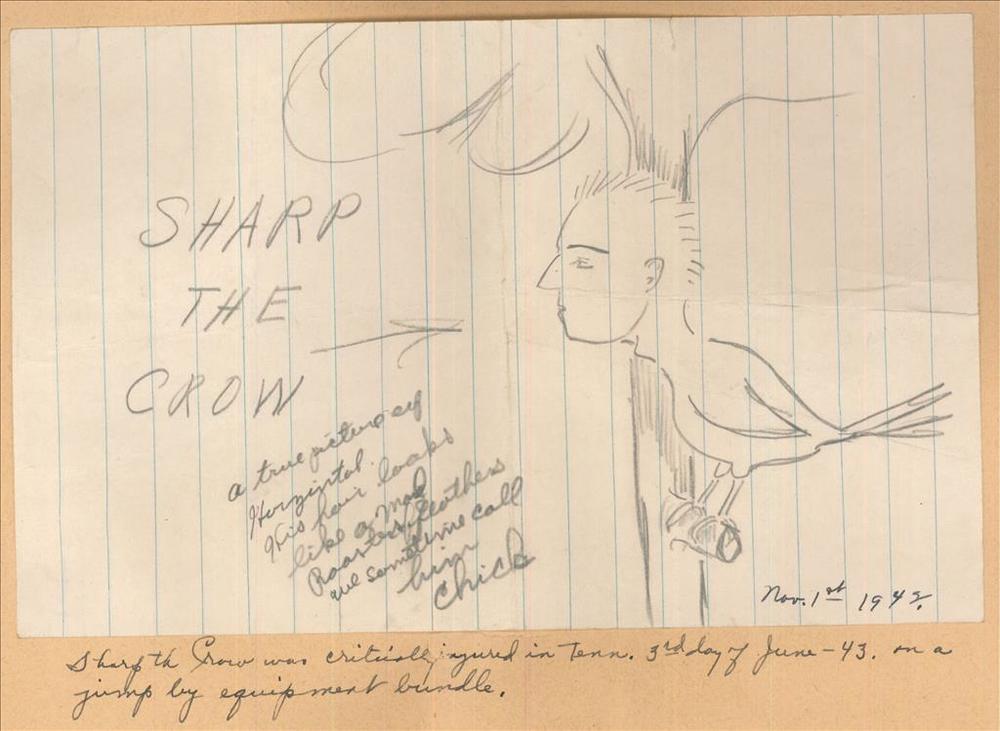 SHARP
THE
CROW
a true picture of
Horzintal.
His hair looks
like a mad
Roaster feathers
we sometime call
him
Chick
Nov. 1st 1942.
Sharp th Crow was critically injured in Tenn. 3rd day of June - 43. on a
jump by equipment bundle.